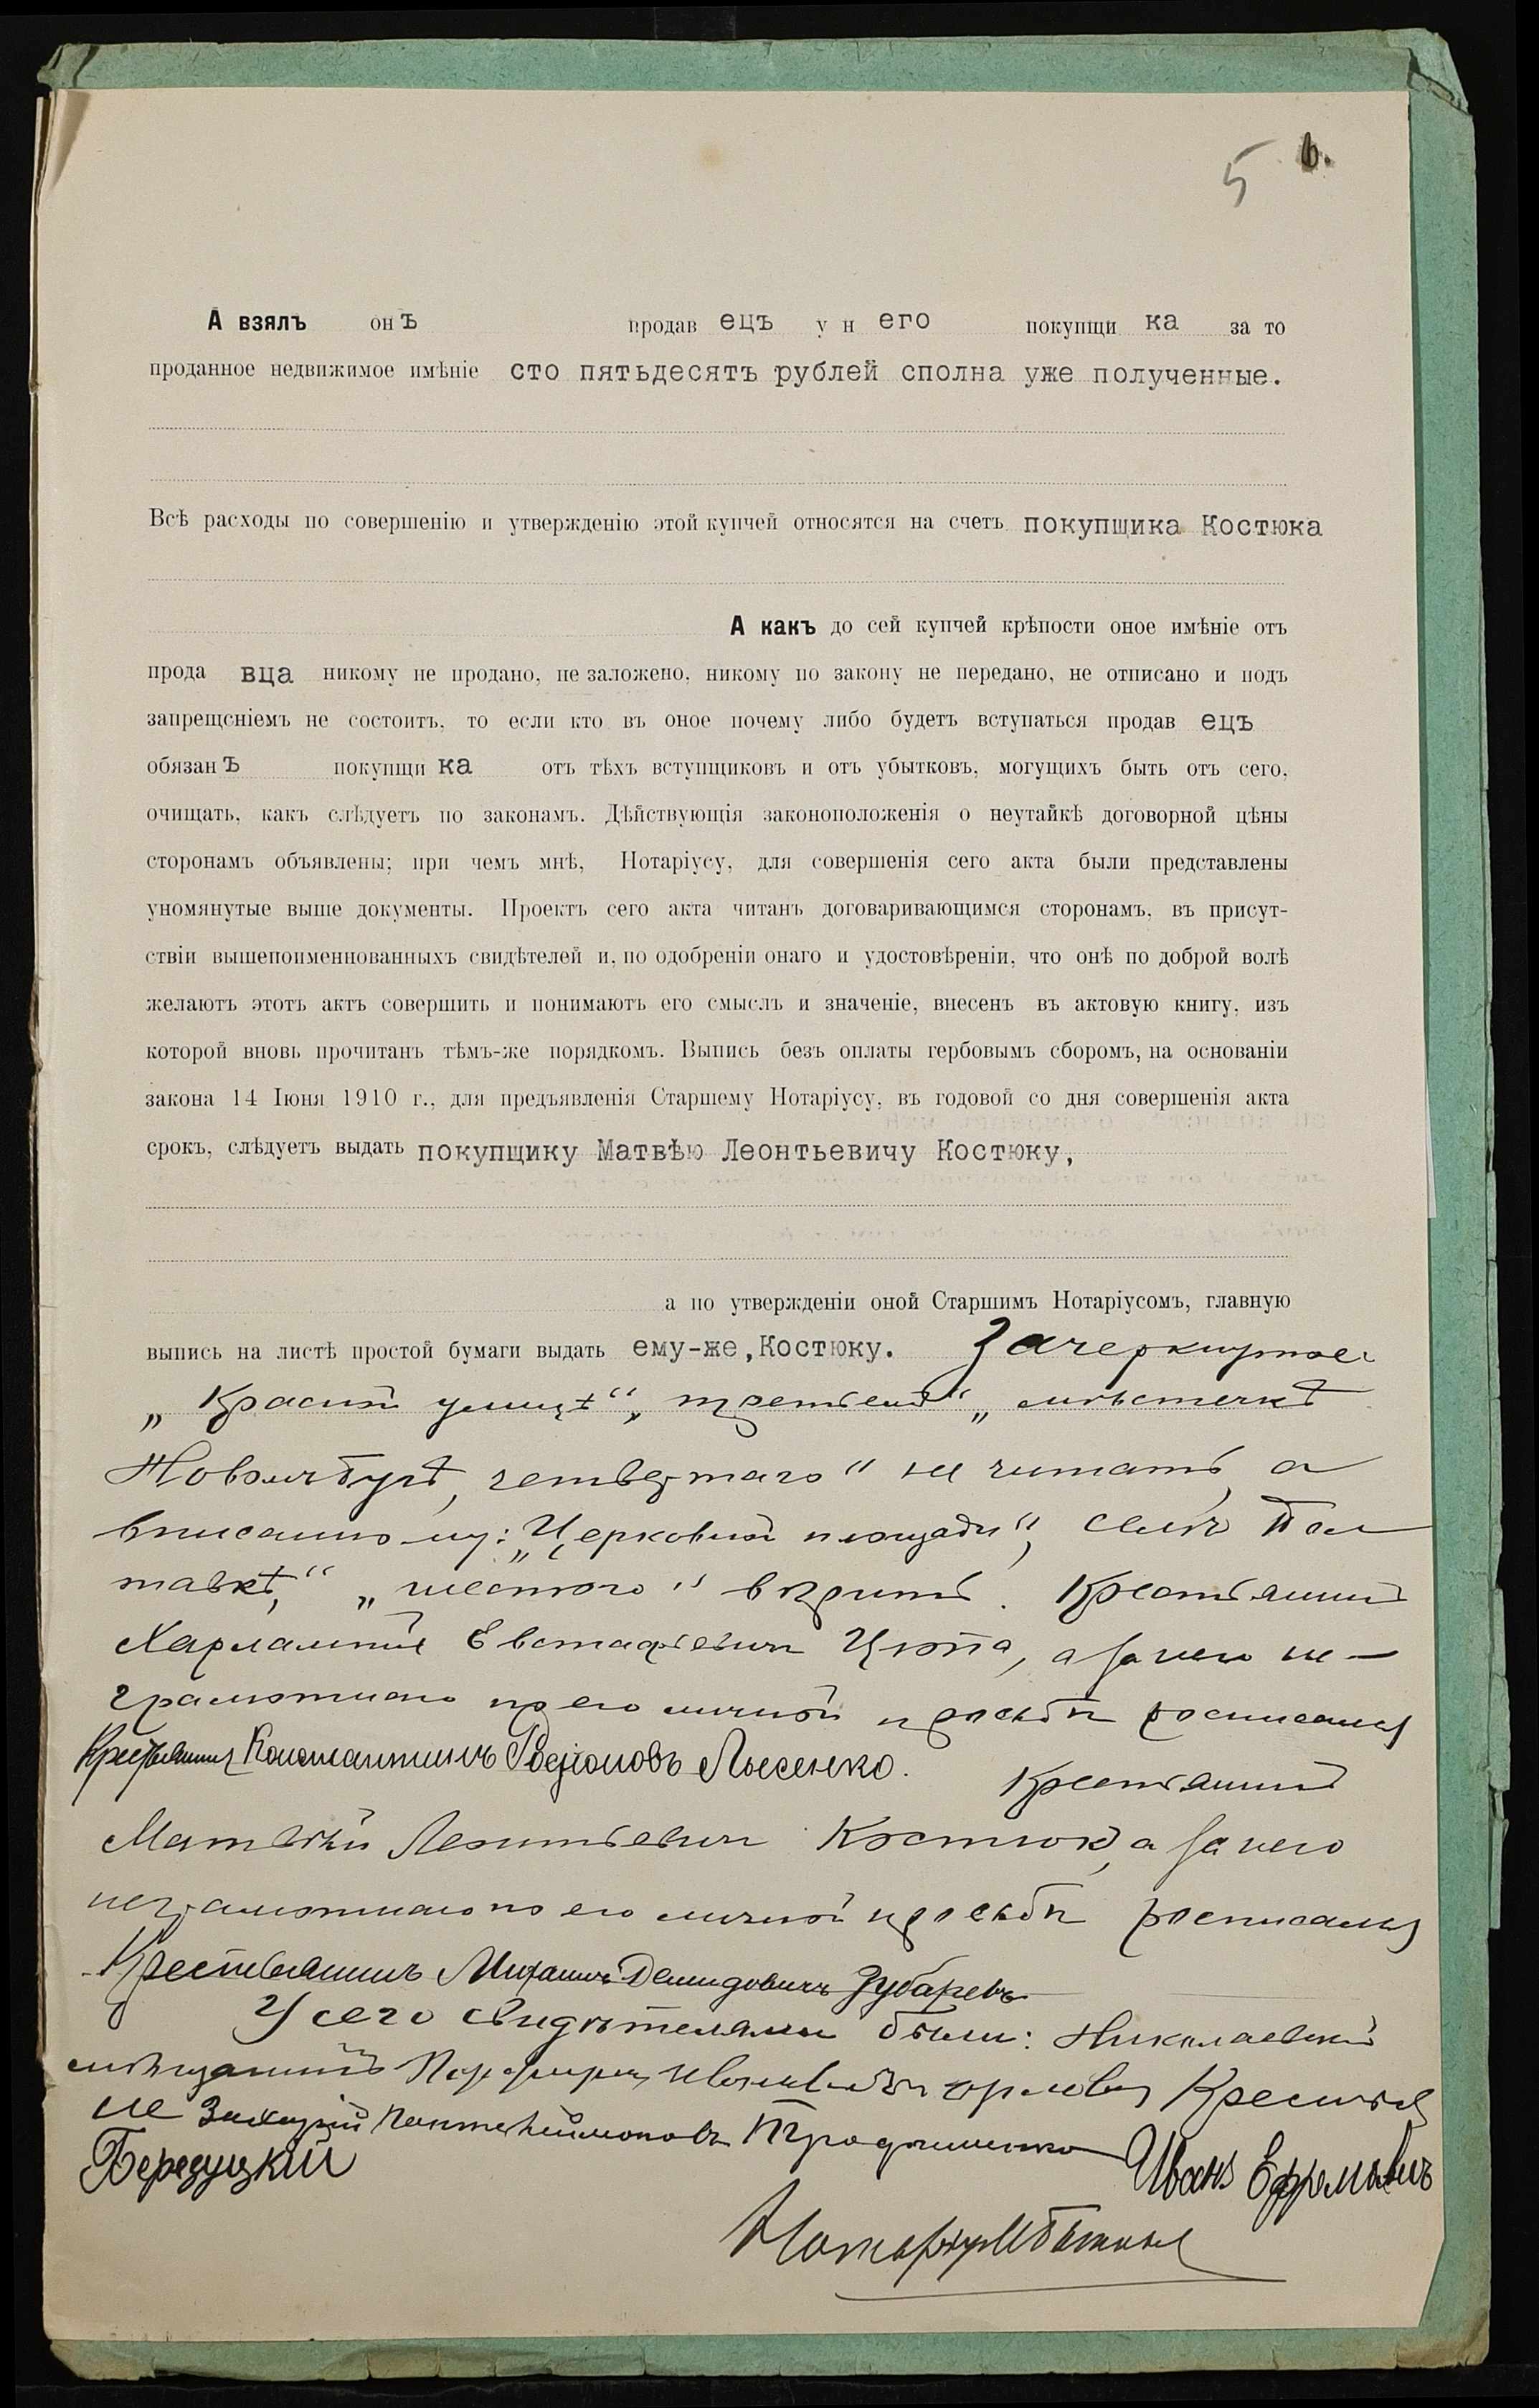 5 6.
А взялъ онъ продавецъ у него покупщика за то
проданное недвижимое имѣніе сто пятьдесятъ рублей сполна уже полученные.
Всѣ расходы по совершенію и утвержденію этой купчей относятся на счетъ покупщика Костюка
А какъ до сей купчей крѣпости оное имѣніе отъ
продавца никому не продано, не заложено, никому по закону не передано, не отписано и подъ
запрещеніемъ не состоитъ, то если кто въ оное почему либо будетъ вступаться продавецъ
обязанъ покупщика отъ тѣхъ вступщиковъ и отъ убытковъ, могущихъ быть отъ сего,
очищать, какъ слѣдуетъ по законамъ. Дѣйствующія законоположенія о неутайкѣ договорной цѣны
сторонамъ объявлены; при чемъ мнѣ, Нотаріусу, для совершенія сего акта были представлены
упомянутые выше документы. Проектъ сего акта читанъ договаривающимся сторонамъ, въ присут-
ствіи вышепоименнованныхъ свидѣтелей и, по одобреніи онаго и удостовѣреніи, что онѣ по доброй волѣ
желаютъ этотъ актъ совершить и понимаютъ его смыслъ и значеніе, внесенъ въ актовую книгу, изъ
которой вновь прочитанъ тѣмъ-же порядкомъ. Выпись безъ оплаты гербовымъ сборомъ, на основаніи
закона 14 Іюня 1910 г., для предъявленія Старшему Нотаріусу, въ годовой со дня совершенія акта
срокъ, слѣдуетъ выдать покупщику Матвѣю Леонтьевичу Костюку,
а по утвержденіи оной Старшимъ Нотаріусомъ, главную
выпись на листѣ простой бумаги выдать ему-же, Костюку. Зачеркнутое:
„ улицѣ“, „третьей“ „мѣстечкѣ
Новомъ Бугѣ, четвертаго“ не читать, а
вписанному: „Церковной площади“, селѣ Пол
тавкѣ,“ „шестого“ вѣрить. Крестьянинъ
Харлампій Евстафіевичъ Цюпа, а за него не-
грамотнаго по его личной просьбѣ росписался
Крестьянинъ Константинъ Родіоновъ Лысенко. Крестьянинъ
Матвѣй Леонтьевичъ Костюкъ, а за него
неграмотнаго по его личной просьбѣ росписался
Крестьянинъ Михаилъ Демидовичъ Зубаревъ
У сего свидѣтелями были: Николаевскій
мѣщанинъ Крестья
не Захарій Пантелеймоновъ Иванъ Ефремовичъ
Березуцкій
Нотаріусъ